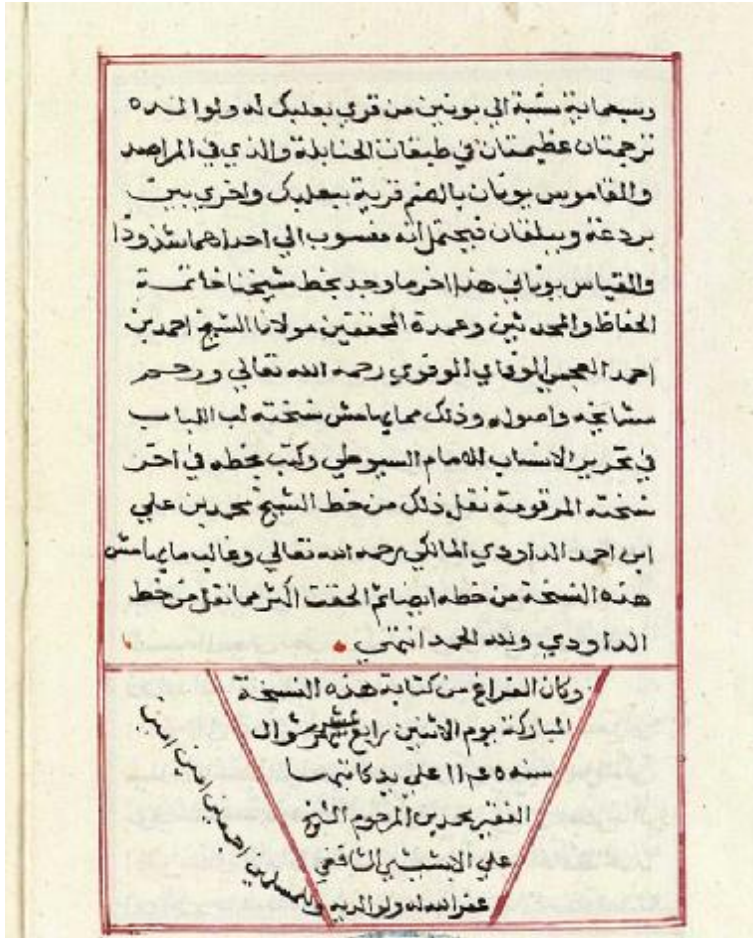 وسبعمائة نسبة الي يونين من قري بعلبك له ولوالده
ترجمتان عظيمتان في طبقات الحنابلة والذي في المراصد
والقاموس يونان بالضم قرية ببعلبك واخري بين
بردعة وبيلقان فيحتمل أنه منسوب الي احداهما شذوذا
والقياس يوناني هذا اخر ما وجد بخط شيخنا خاتمة
الحفاظ والمحدثين وعمدة المحققين مولانا الشيخ احمد بن
احمد العجمي الوفاي رحمه الله تعالي ورحم
مشايخه واصوله وذلك مما بهامش نسخته لب اللباب
في تحرير الانساب للامام السيوطي وكتب بخطه في اخر
نسخته المرقومة نقل ذلك من خط الشيخ محمد بن علي
ابن احمد الداودي المالكي رحمه الله تعالي وغالب ما بهامش
هذه النسخة من خطه ايضا ثم الحقت اكثر مما نقل من خط
الداودي ولله الحمد انتهي
وكان الفراغ من كتابة هذه النسخة
المباركة يوم الاثنين رابع عشر شهر شوال
سنه ١١٤٥ علي يد كاتبها
الفقير محمد بن المرحوم الشيخ
علي الشافعي
غفر الله له ولوالديه
وللمسلمين اجمعين امين امين